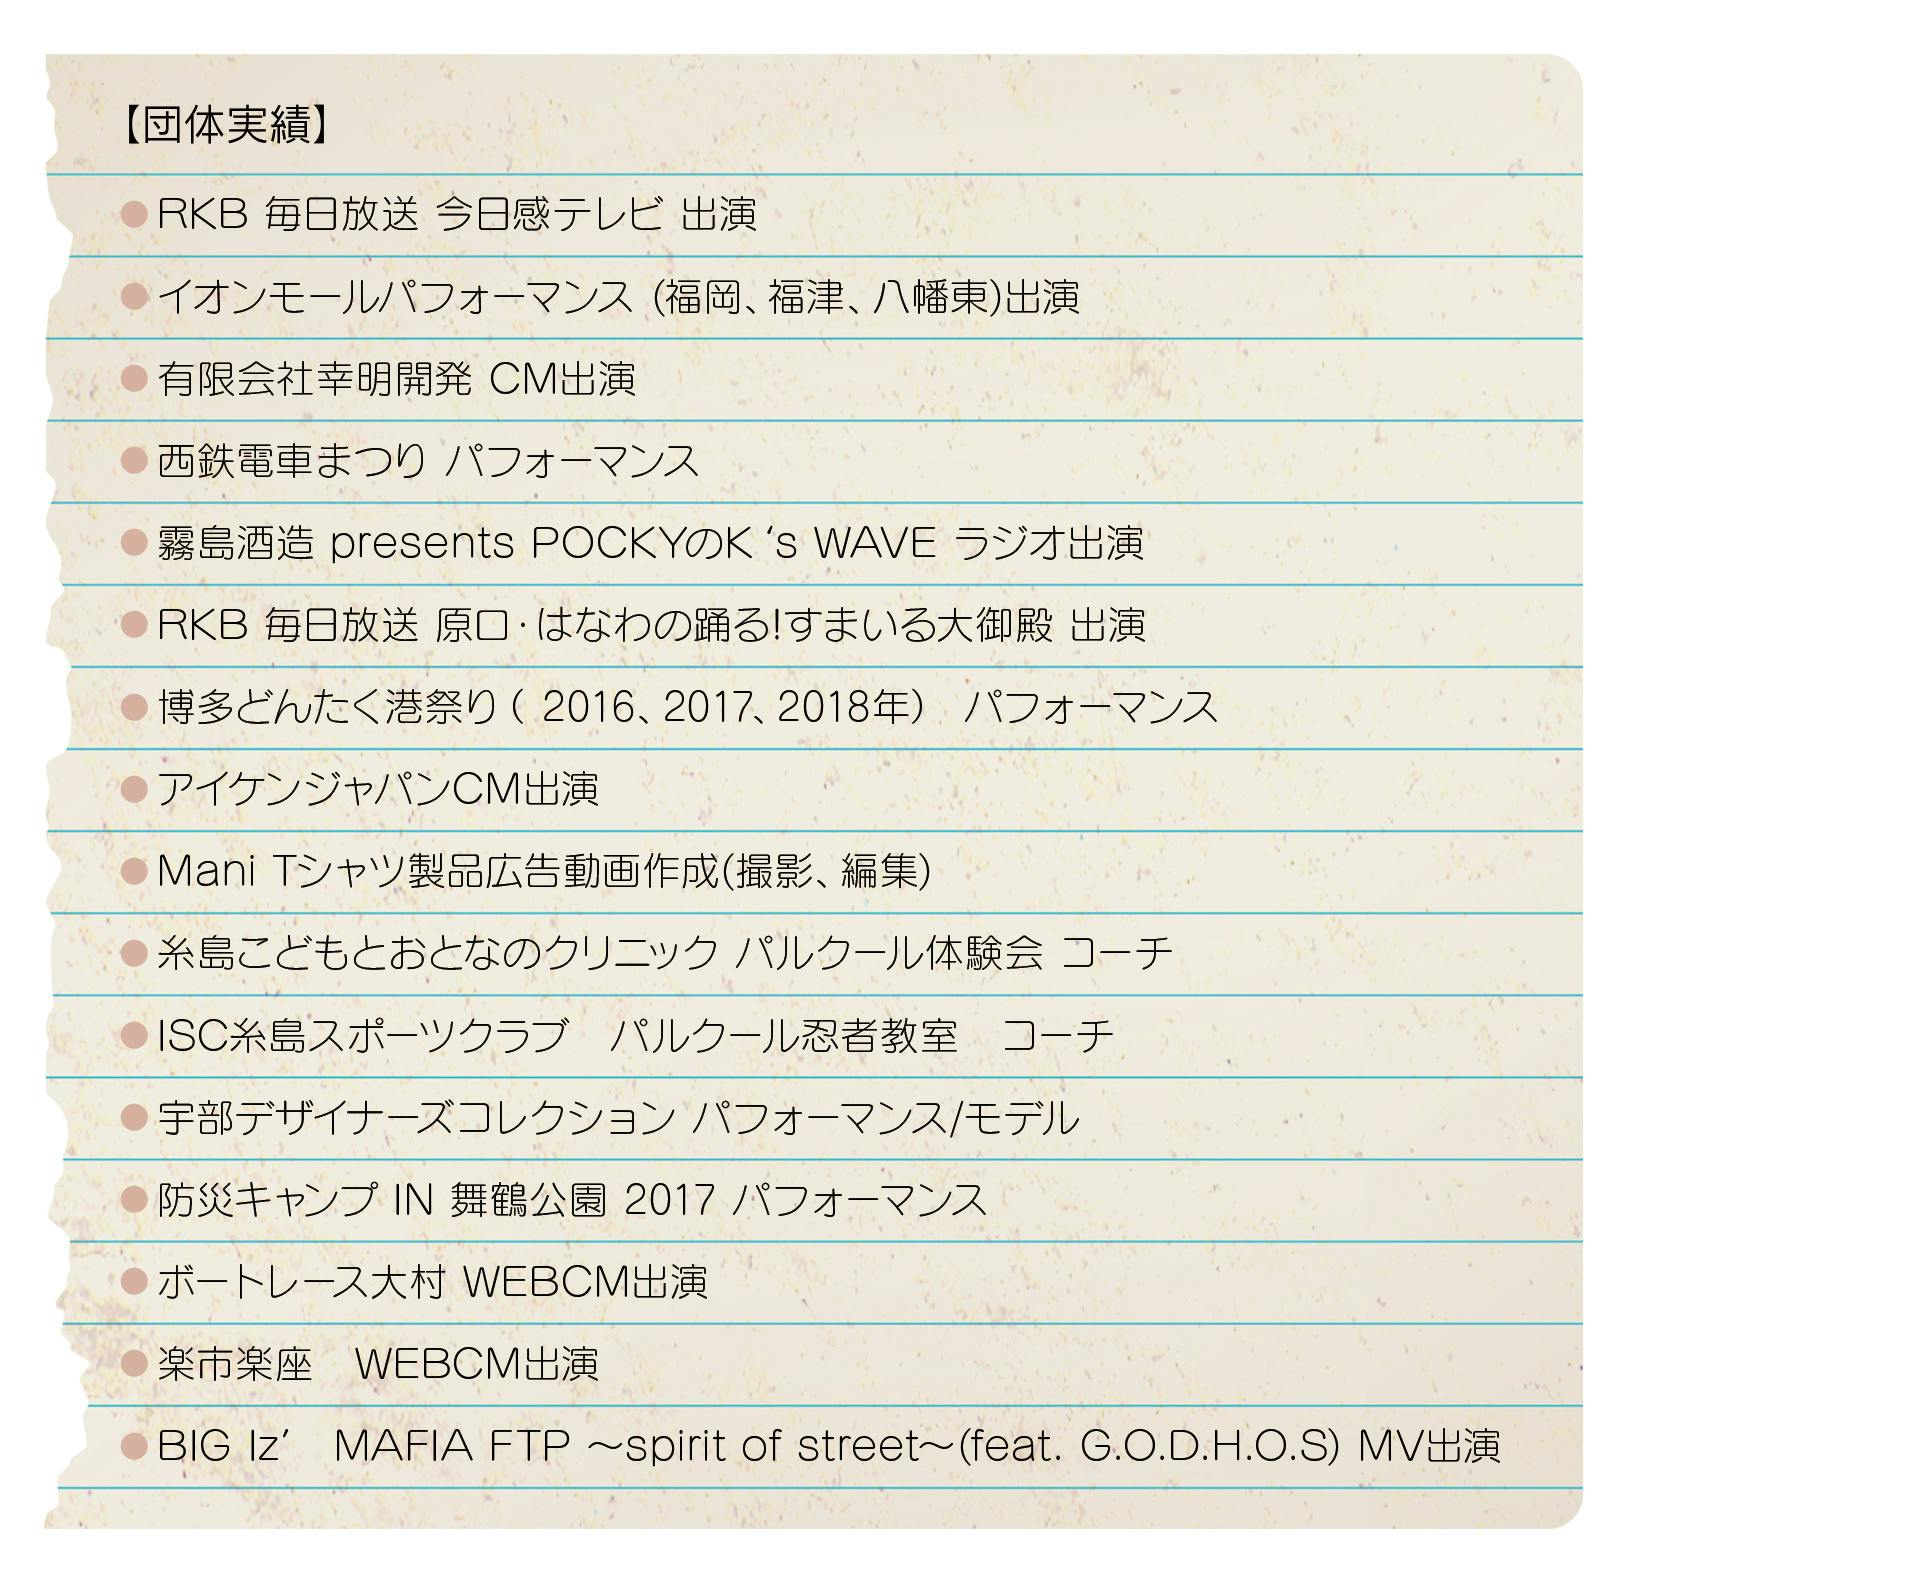 【団体実績】
●RKB 毎日放送 今日感テレビ 出演
●イオンモールパフォーマンス (福岡、福津、八幡東)出演
●有限会社幸明開発 CM出演
●西鉄電車まつり パフォーマンス
●霧島酒造 presents POCKYのK ‘s WAVE ラジオ出演
●RKB 毎日放送 原口・はなわの踊る!すまいる大御殿 出演
●博多どんたく港祭り ( 2016、2017、2018年)　パフォーマンス
●アイケンジャパンCM出演
●Mani Tシャツ製品広告動画作成(撮影、編集)
●糸島こどもとおとなのクリニック パルクール体験会 コーチ
●ISC糸島スポーツクラブ　パルクール忍者教室　コーチ
●宇部デザイナーズコレクション パフォーマンス/モデル
●防災キャンプ IN 舞鶴公園 2017 パフォーマンス
●ボートレース大村 WEBCM出演
●楽市楽座　WEBCM出演
●BIG Iz’　MAFIA FTP ～spirit of street～(feat. G.O.D.H.O.S) MV出演